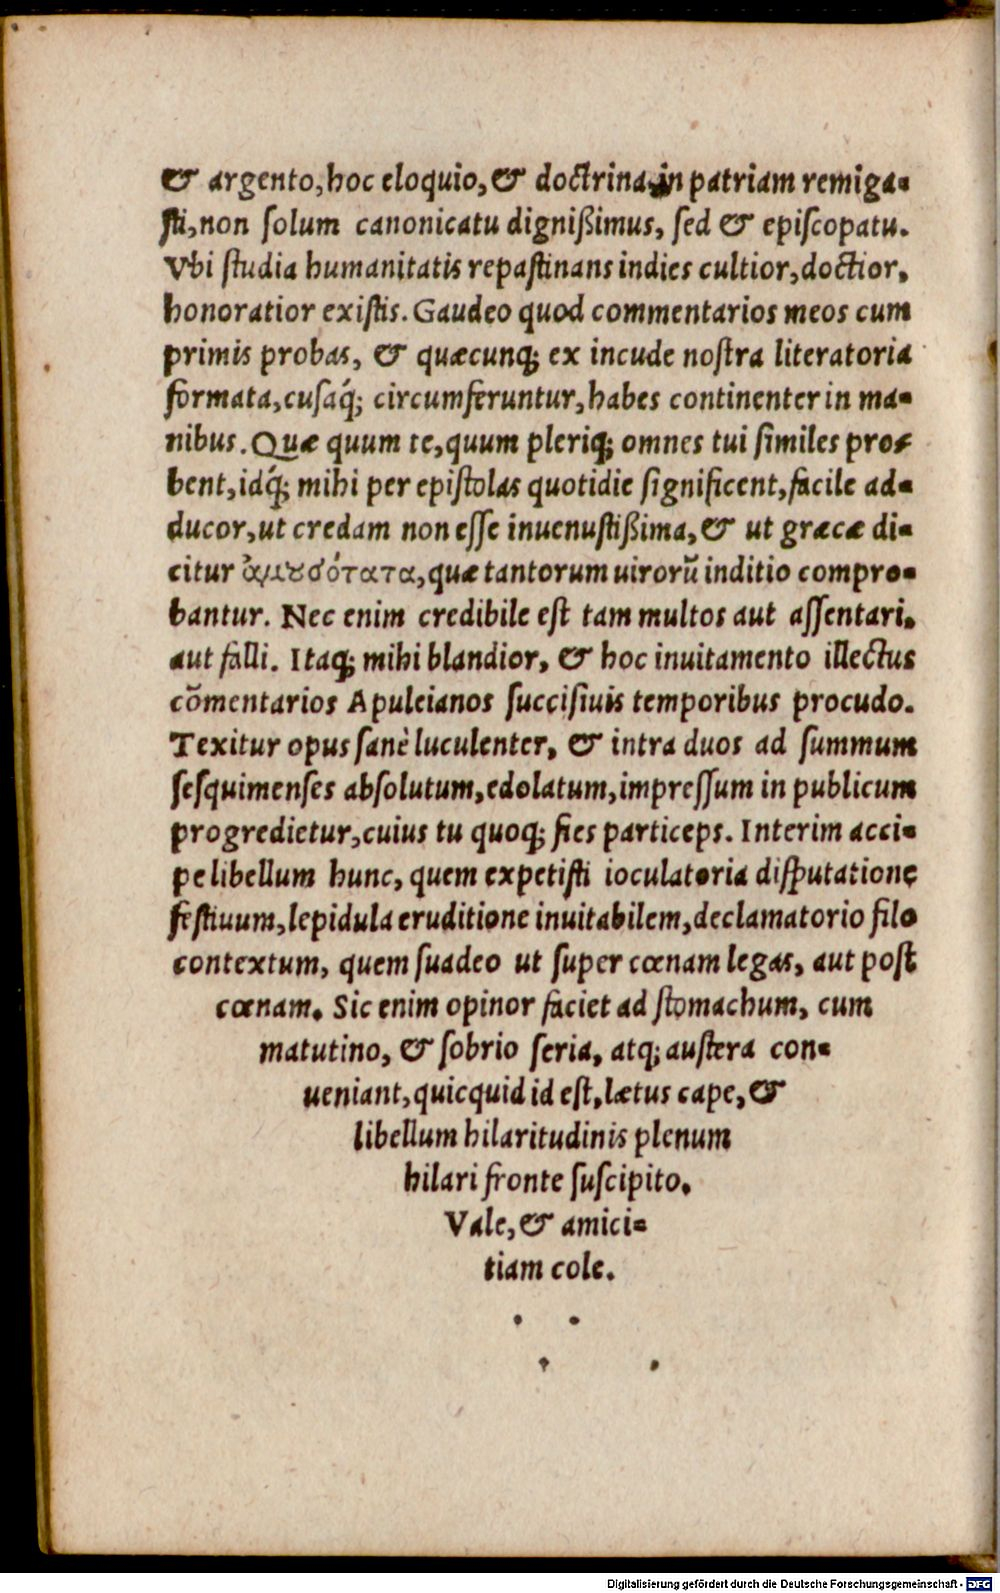 & argento, hoc eloquio, & doctrina in patriam remiga-
ſti, non ſolum canonicatu digniſſimus, ſed & epiſcopatu.
Vbi ſtudia humanitatis repaſtinans indies cultior, doctior,
honoratior exiſtis. Gaudeo quod commentarios meos cum
primis probas, & quæcunq; ex incude noſtra literatoria
formata, cuſaq́; circumferuntur, habes continenter in ma-
nibus. Quæ quum te, quum pleriq; omnes tui ſimiles pro-
bent, idq́; mihi per epiſtolas quotidie ſignificent, facile ad-
ducor, ut credam non eſſe inuenuſtiſſima, & ut græcæ di-
citur ἀμȣσότατα, quæ tantorum uirorũ inditio compro-
bantur. Nec enim credibile eſt tam multos aut aſſentari,
aut falli. Itaq; mihi blandior, & hoc inuitamento illectus
cõmentarios Apuleianos ſucciſiuis temporibus procudo.
Texitur opus ſanè luculenter, & intra duos ad ſummum
ſeſquimenſes abſolutum, edolatum, impreſſum in publicum
progredietur, cuius tu quoq; fies particeps. Interim acci-
pe libellum hunc, quem expetiſti ioculatoria diſputatione
feſtiuum, lepidula eruditione inuitabilem, declamatorio filo
contextum, quem ſuadeo ut ſuper cœnam legas, aut poſt
cœnam. Sic enim opinor faciet ad ſtomachum, cum
matutino, & ſobrio ſeria, atq; auſtera con-
ueniant, quicquid id eſt, lætus cape, &
libellum hilaritudinis plenum
hilari fronte ſuſcipito.
Vale, & amici-
tiam cole.
Digitalisierung gefördert durch die Deutsche Forschungsgemeinschaft - DFG